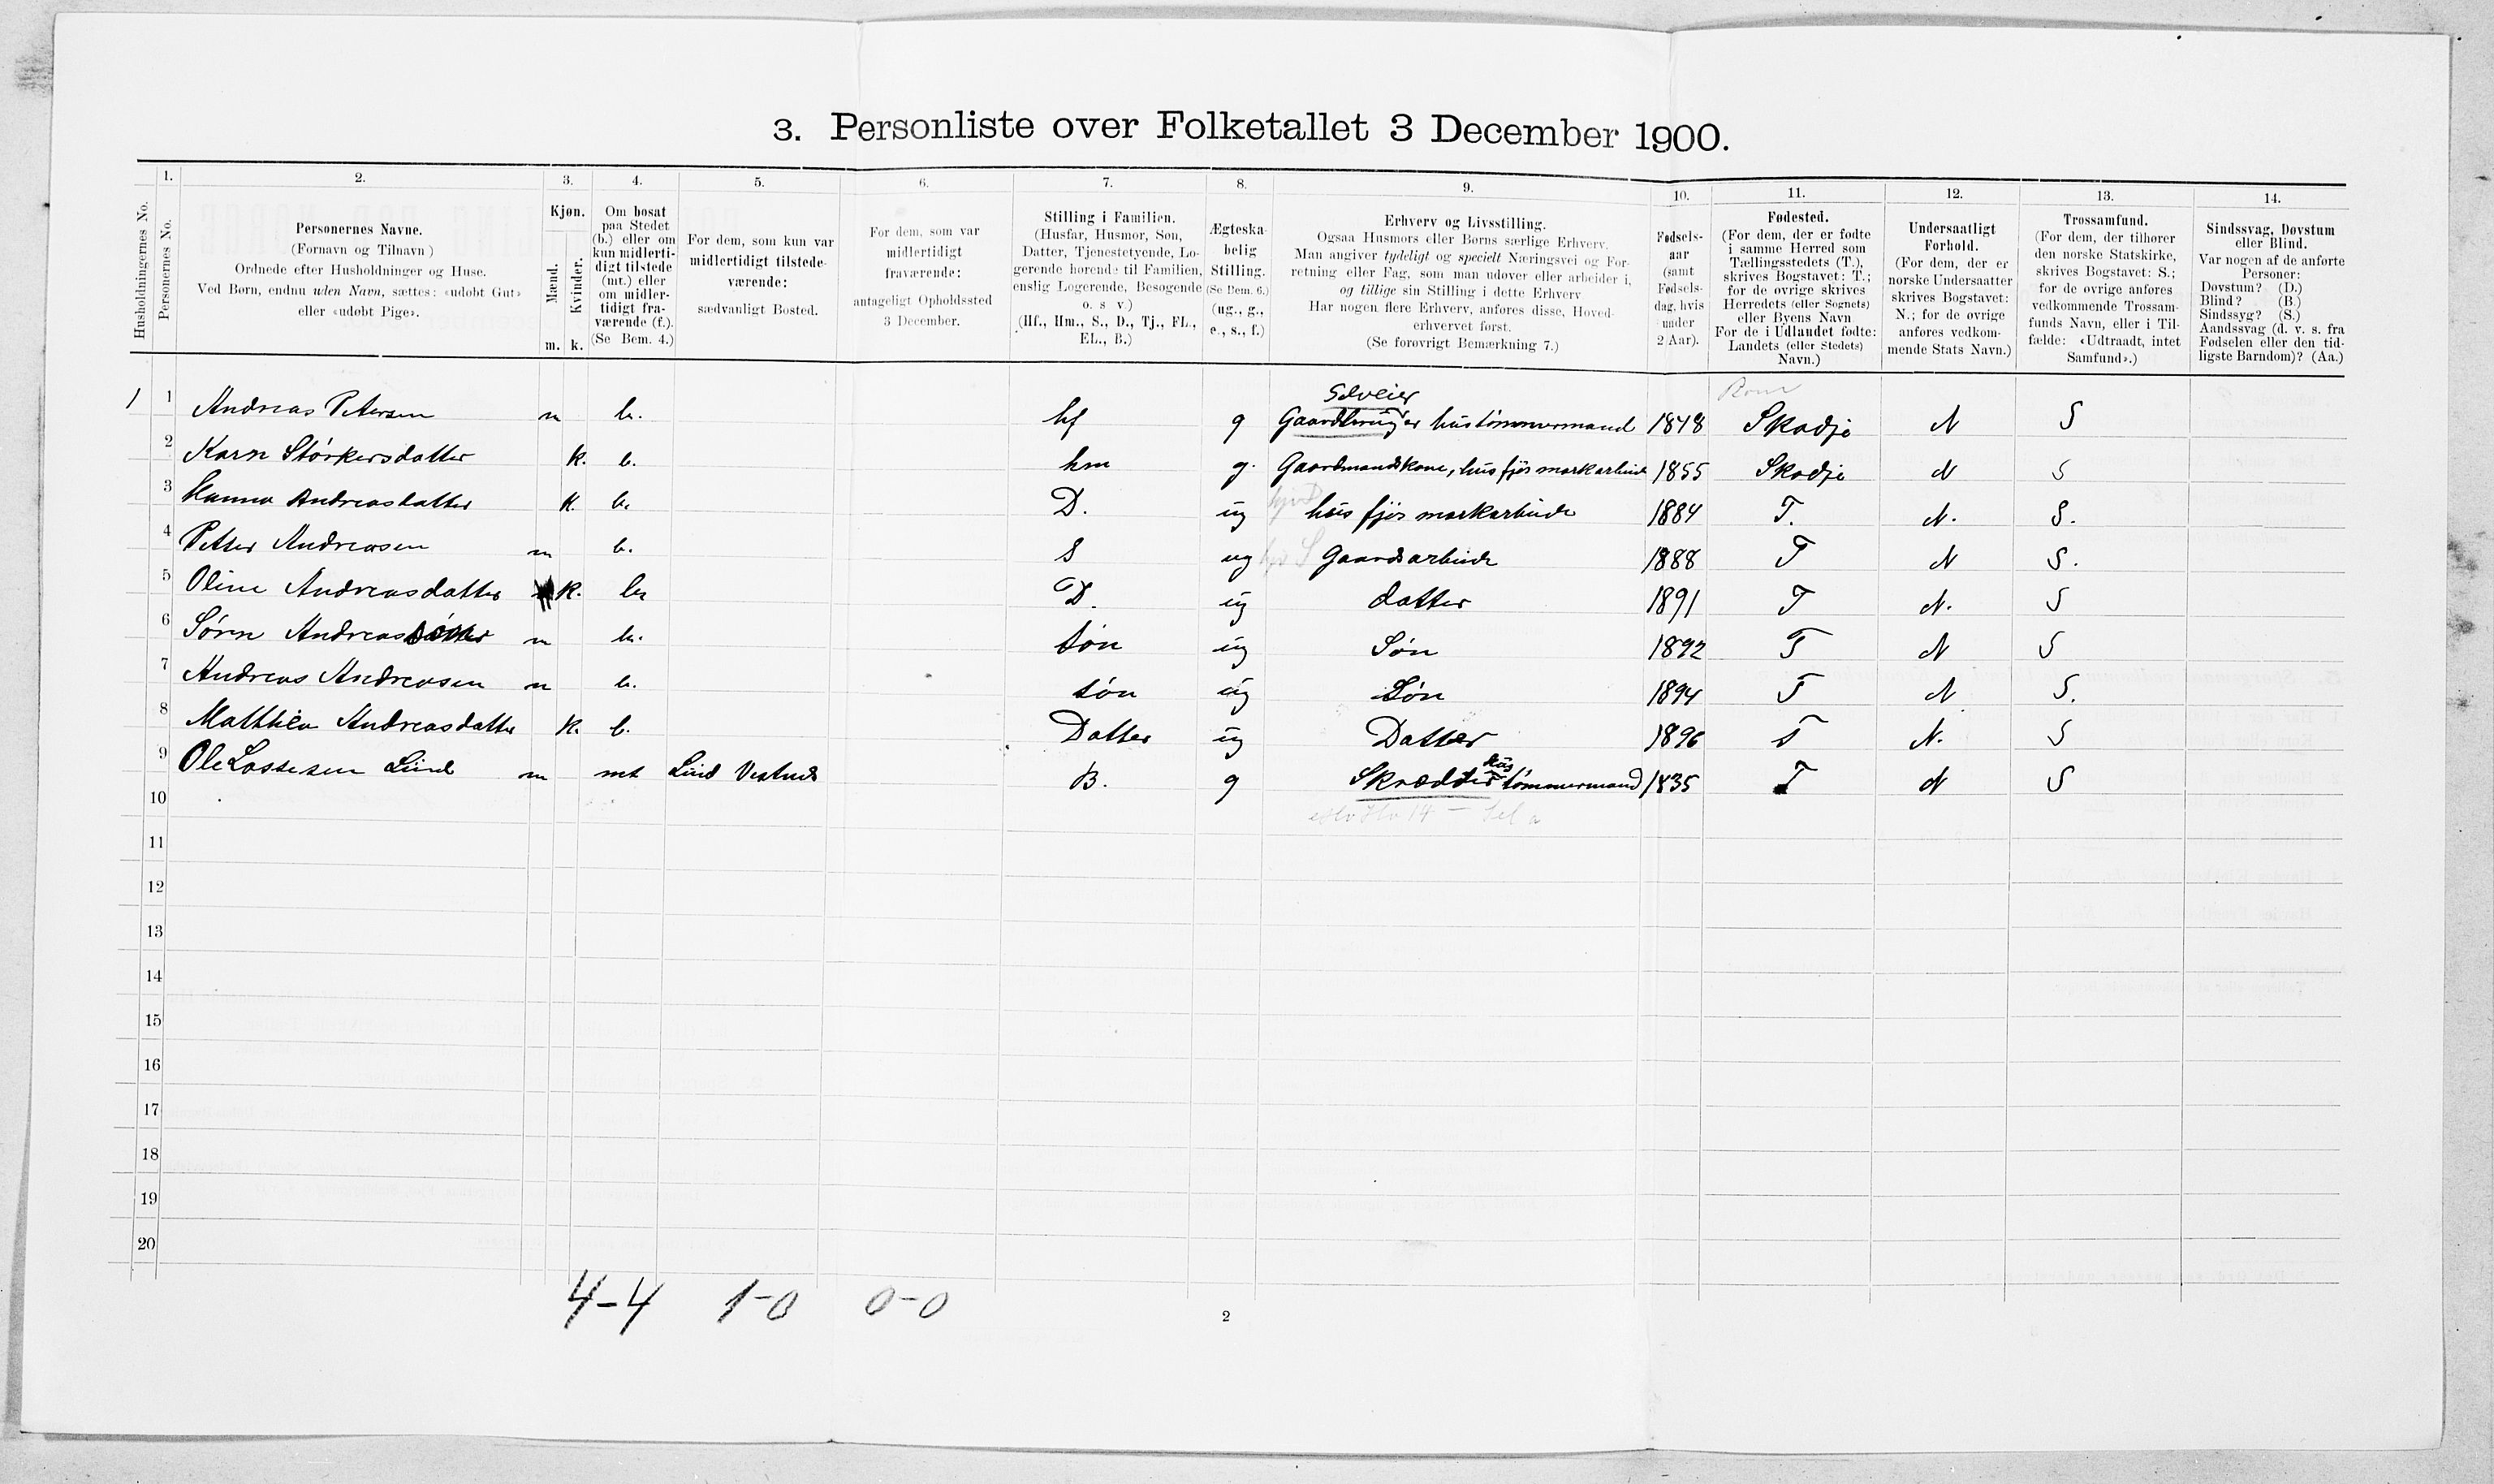 3. Personliste over Folketallet 3 December 1900.
Husholdningernes No.
1.
Personernes No.
2.
Personernes Navne.
(Fornavn og Tilnavn)
Ordnede efter Husholdninger og Huse.
Ved Børn, endnu uden Navn, sættes: «udøbt Gut»
eller «udøbt Pige».
3.
Kjøn.
Mænd.
Kvinder.
m. k.
4.
Om bosat
paa Stedet
(b.) eller om
kun midlerti-
digt tilstede
(mt.) eller
om midler-
tidigt fra-
værende (f.).
(Se Bem. 4.)
5.
For dem, som kun var
midlertidigt tilstede-
værende:
sædvanligt Bosted.
6.
For dem, som var
midlertidigt
fraværende:
antageligt Opholdssted
3 December.
7.
Stilling i Familien.
(Husfar, Husmor, Søn,
Datter, Tjenestetyende, Lo-
gerende hørende til Familien,
enslig Logerende, Besøgende
o. s v.)
(Hf., Hm., S., D., Tj., FL.,
EL., B.)
8.
Ægteska-
belig
Stilling.
(Se Bem. 6.)
(ug., g.,
e., s., f.)
9.
Erhverv og Livsstilling.
Ogsaa Husmors eller Børns særlige Erhverv.
Man angiver tydeligt og specielt Næringsvei og For-
retning eller Fag, som man udøver eller arbeider i,
og tillige sin Stilling i dette Erhverv
Har nogen flere Erhverv, anføres disse, Hoved-
erhvervet først.
(Se forøvrigt Bemærkning 7.)
10.
Fødsels-
aar
(samt
Fødsels-
dag, hvis
under
2 Aar).
11.
Fødested.
(For dem, der er fødte
i samme Herred som
Tællingsstedets (T.),
skrives Bogstavet: T.;
for de øvrige skrives
Herredets (eller Sognets)
eller Byens Navn
For de i Udlandet fødte:
Landets (eller Stedets)
Navn.)
12.
Undersaatligt
Forhold.
(For dem, der er
norske Undersaatter
skrives Bogstavet:
N.; for de øvrige
anføres vedkom-
mende Stats Navn.)
13.
Trossamfund.
(For dem, der tilhører
den norske Statskirke,
skrives Bogstavet: S.;
for de øvrige anføres
vedkommende Trossam-
funds Navn, eller i Til-
fælde: «Udtraadt, intet
Samfund».)
14.
Sindssvag, Døvstum
eller Blind.
Var nogen af de anførte
Personer:
Døvstum? (D.)
Blind? (B.)
Sindssyg? (S.)
Aandssvag (d. v. s. fra
Fødselen eller den tid-
ligste Barndom)? (Aa.)
Selveier
1 1 Andreas Petersen m b. hf g Gaardbruger hustömmermand 1848 Skodje N S
2 Karn Störkersdatter k. b. hm g. Gaardmandskone, hus fjös markarbeide 1855 Skodje N S
3 Hanna Andreasdatter k. b. D. ug hus fjös markarbeide 1884 T. N. S.
4 Petter Andreasen m b. S ug Gaardsarbeide 1888 T N S.
5 Oline Andreasdatter k. b. D. ug datter 1891 T N. S
6 Sörn Andreas m b. sön ug Sön 1892 T N S
7 Andreas Andreasen m b. sön ug Sön 1894 T N S.
8 Mathhea Andreasdatter k. b. Datter ug Datter 1896 T N. S
9 Ole Lassesen Lund m mt Lund Vestnes B. g Skrædder hus tömmermand 1835 T N S
10
11
12
13
14
15
16
17
18
19
20
4-4 1-0 0-0
2